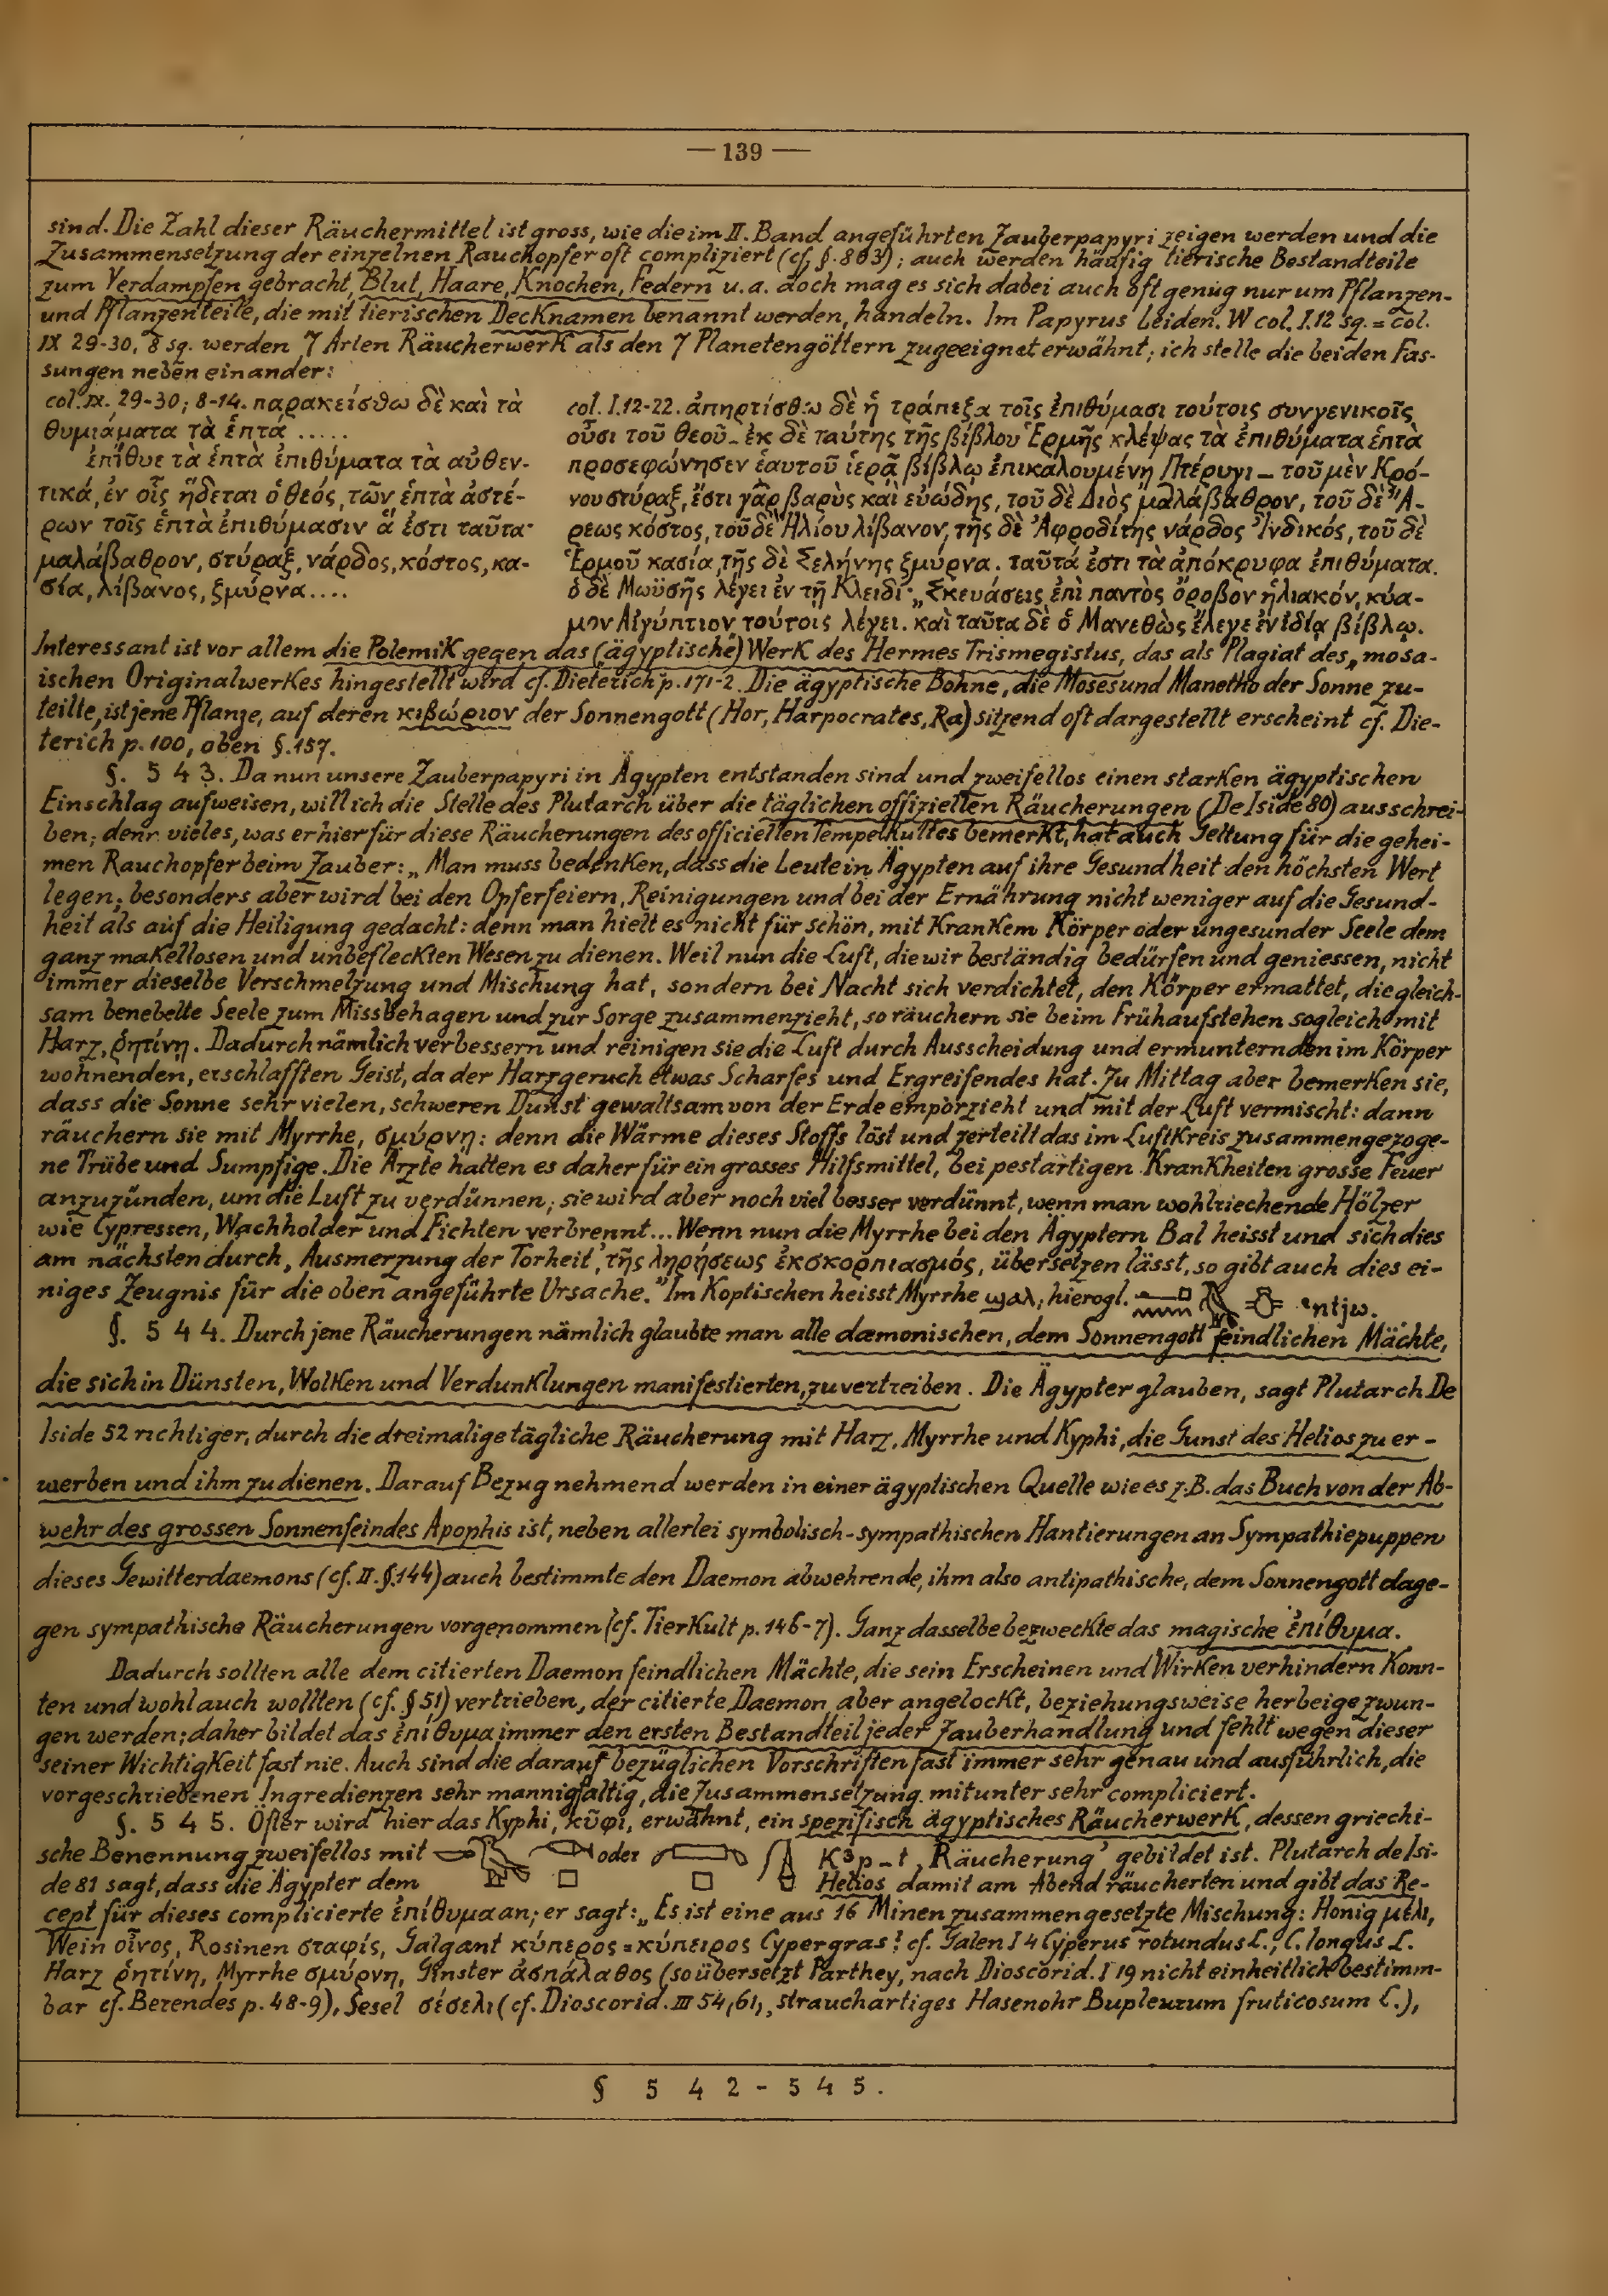 — 139 —
sind. Die Zahl dieser Räuchermittel ist gross, wie die im II. Band angeführten Zauberpapyri zeigen werden und die
Zusammensetzung der einzelnen Rauchopfer oft compliziert (cf. §. 803); auch werden häufig tierische Bestandteile
zum Verdampfen gebracht, Blut, Haare, Knochen, Federn u. a. doch mag es sich dabei auch oft genug nur um Pflanzen-
und Pflanzenteile, die mit tierischen Decknamen benannt werden, handeln. Im Papyrus Leiden. W col. I.12 sq. = col.
IX 29-30, 8 sq. werden 7 Arten Räucherwerk als den 7 Planetengöttern zugeeignet erwähnt; ich stelle die beiden Fas-
sungen neben einander:
col. IX. 29-30; 8-14. παρακείσθω δὲ καὶ τὰ
θυμιάματα τὰ ἑπτά .....
ἐπίθυε τὰ ἑπτὰ ἐπιθύματα τὰ αὐθεν-
τικά, ἐν οἷς ἥδεται ὁ θεός, τῶν ἑπτὰ ἀστέ-
ρων τοῖς ἑπτὰ ἐπιθύμασιν ἅ ἐστι ταῦτα·
μαλάβαθρον, στύραξ, νάρδος, κόστος, κα-
σία, λίβανος, ξμύρνα....
col. I.12-22. ἀπηρτίσθω δὲ ἡ τράπεξα τοῖς ἐπιθύμασι τούτοις συνγενικοῖς
οὖσι τοῦ θεοῦ – ἐκ δὲ ταύτης τῆς βίβλου Ἑρμῆς κλέψας τὰ ἐπιθύματα ἑπτὰ
προσεφώνησεν ἑαυτοῦ ἱερᾷ βίβλῳ ἐπικαλουμένῃ Πτέρυγι – τοῦ μὲν Κρό-
νου στύραξ, ἔστι γὰρ βαρὺς καὶ εὐώδης, τοῦ δὲ Διὸς μαλάβαθρον, τοῦ δὲ Ἄ-
ρεως κόστος, τοῦ δὲ Ἡλίου λίβανον, τῆς δὲ Ἀφροδίτης νάρδος Ἰνδικός, τοῦ δὲ
Ἑρμοῦ κασία, τῆς δὲ Σελήνης ξμύρνα. ταῦτά ἐστι τὰ ἀπόκρυφα ἐπιθύματα.
ὁ δὲ Μωϋσῆς λέγει ἐν τῇ Κλειδί· „Σκευάσεις ἐπὶ παντὸς ὄροβον ἡλιακόν, κύα-
μον Αἰγύπτιον“ τούτοις λέγει. καὶ ταῦτα δὲ ὁ Μανεθὼς ἔλεγε ἐν ἰδίᾳ βίβλῳ.
Interessant ist vor allem die Polemik gegen das (ägyptische) Werk des Hermes Trismegistus, das als Plagiat des „mosa-
ischen Originalwerkes hingestellt wird cf. Dieterich p. 171-2. Die ägyptische Bohne, die Moses und Manetho der Sonne zu-
teilte, ist jene Pflanze, auf deren κιβώριον der Sonnengott (Hor, Harpocrates, Ra) sitzend oft dargestellt erscheint cf. Die-
terich p. 100, oben §. 157.
§. 5 4 3. Da nun unsere Zauberpapyri in Ägypten entstanden sind und zweifellos einen starken ägyptischen
Einschlag aufweisen, will ich die Stelle des Plutarch über die täglichen offiziellen Räucherungen (De Iside 80) ausschrei-
ben; denn vieles, was er hier für diese Räucherungen des officiellen Tempelkultes bemerkt, hat auch Geltung für die gehei-
men Rauchopfer beim Zauber: „Man muss bedenken, dass die Leute in Ägypten auf ihre Gesundheit den höchsten Wert
legen; besonders aber wird bei den Opferfeiern, Reinigungen und bei der Ernährung nicht weniger auf die Gesund-
heit als auf die Heiligung gedacht: denn man hielt es nicht für schön, mit krankem Körper oder ungesunder Seele dem
ganz makellosen und unbefleckten Wesen zu dienen. Weil nun die Luft, die wir beständig bedürfen und geniessen, nicht
immer dieselbe Verschmelzung und Mischung hat, sondern bei Nacht sich verdichtet, den Körper ermattet, die gleich-
sam benebelte Seele zum Missbehagen und zur Sorge zusammenzieht, so räuchern sie beim Frühaufstehen sogleich mit
Harz, ῥητίνη. Dadurch nämlich verbessern und reinigen sie die Luft durch Ausscheidung und ermuntern den im Körper
wohnenden, erschlafften Geist, da der Harzgeruch etwas Scharfes und Ergreifendes hat. Zu Mittag aber bemerken sie,
dass die Sonne sehr vielen, schweren Dunst gewaltsam von der Erde emporzieht und mit der Luft vermischt: dann
räuchern sie mit Myrrhe, σμύρνη: denn die Wärme dieses Stoffs löst und zerteilt das im Luftkreis zusammengezoge-
ne Trübe und Sumpfige. Die Ärzte halten es daher für ein grosses Hilfsmittel, bei pestartigen Krankheiten grosse Feuer
anzuzünden, um die Luft zu verdünnen; sie wird aber noch viel besser verdünnt, wenn man wohlriechende Hölzer
wie Cypressen, Wachholder und Fichten verbrennt... Wenn nun die Myrrhe bei den Ägyptern Bal heisst und sich dies
am nächsten durch ‚Ausmerzung der Torheit‘, τῆς ληρήσεως ἐκσκορπιασμός, übersetzen lässt, so gibt auch dies ei-
niges Zeugnis für die oben angeführte Ursache.“ Im Koptischen heisst Myrrhe ϣⲁⲗ, hierogl. ꜥntjw.
§. 5 4 4. Durch jene Räucherungen nämlich glaubte man alle dæmonischen, dem Sonnengott feindlichen Mächte,
die sich in Dünsten, Wolken und Verdunklungen manifestierten, zu vertreiben. Die Ägypter glauben, sagt Plutarch De
Iside 52 richtiger, durch die dreimalige tägliche Räucherung mit Harz, Myrrhe und Kyphi, die Gunst des Helios zu er-
werben und ihm zu dienen. Darauf Bezug nehmend werden in einer ägyptischen Quelle wie es z. B. das Buch von der Ab-
wehr des grossen Sonnenfeindes Apophis ist, neben allerlei symbolisch-sympathischen Hantierungen an Sympathiepuppen
dieses Gewitterdaemons (cf. II. §. 144) auch bestimmte den Daemon abwehrende, ihm also antipathische, dem Sonnengott dage-
gen sympathische Räucherungen vorgenommen (cf. Tierkult p. 146-7). Ganz dasselbe bezweckte das magische ἐπίθυμα.
Dadurch sollten alle dem citierten Daemon feindlichen Mächte, die sein Erscheinen und Wirken verhindern konn-
ten und wohl auch wollten (cf. § 51) vertrieben, der citierte Daemon aber angelockt, beziehungsweise herbeigezwun-
gen werden; daher bildet das ἐπίθυμα immer den ersten Bestandteil jeder Zauberhandlung und fehlt wegen dieser
seiner Wichtigkeit fast nie. Auch sind die darauf bezüglichen Vorschriften fast immer sehr genau und ausführlich, die
vorgeschriebenen Ingredienzen sehr mannigfaltig, die Zusammensetzung mitunter sehr compliciert.
§. 5 4 5. Öfter wird hier das Kyphi, κῦφι, erwähnt, ein spezifisch ägyptisches Räucherwerk, dessen griechi-
sche Benennung zweifellos mit oder Kꜣp-t ‚Räucherung‘ gebildet ist. Plutarch de Isi-
de 81 sagt, dass die Ägypter dem Helios damit am Abend räucherten und gibt das Re-
cept für dieses complicierte ἐπίθυμα an; er sagt: „Es ist eine aus 16 Minen zusammengesetzte Mischung: Honig μέλι,
Wein οἶνος, Rosinen σταφίς, Galgant κύπερος = κύπειρος Cypergras? cf. Galen I 4 Cyperus rotundus L., C. longus L.
Harz ῥητίνη, Myrrhe σμύρνη, Ginster ἀσπάλαθος (so übersetzt Parthey, nach Dioscorid. I 19 nicht einheitlich bestimm-
bar cf. Berendes p. 48-9), Sesel σέσελι (cf. Dioscorid. III 54, 61, strauchartiges Hasenohr Bupleurum fruticosum L.),
§ 5 4 2 - 5 4 5.